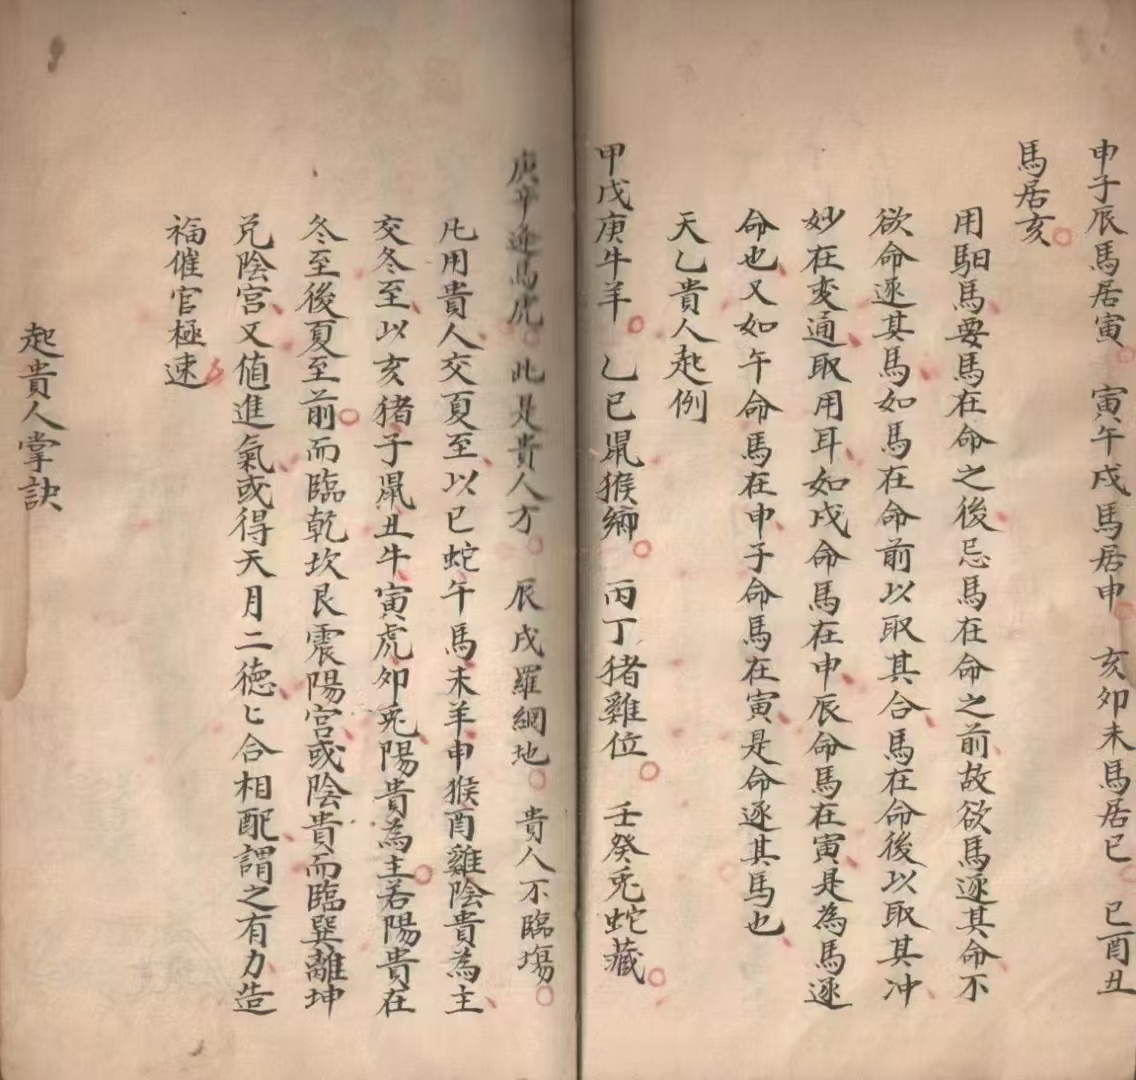 申子辰馬居寅　寅午戌馬居申　亥卯未馬居巳　巳酉丑
馬居亥
用馹馬要馬在命之後忌馬在命之前故欲馬逐其命不
欲命逐其馬如馬在命前以取其合馬在命後以取其冲
妙在変通取用耳如戌命馬在申辰命馬在寅是為馬逐
命也又如午命馬在申子命馬在寅是命逐其馬也
天乙貴人起例
甲戊庚牛羊　乙巳鼠猴鄉　丙丁猪雞位　壬癸兎蛇藏
庚辛逢馬虎　此是貴人方　辰戌羅網地　貴人不臨塲
凡用貴人交夏至以巳蛇午馬未羊申猴酉雞陰貴為主
交冬至以亥猪子鼠丑牛寅虎卯兎陽貴為主若陽貴在
冬至後夏至前而臨乾坎艮震陽宮或陰貴而臨巽離坤
兌陰宮又值進氣或得天月二德匕合相配謂之有力造
福催官極速
起貴人掌訣